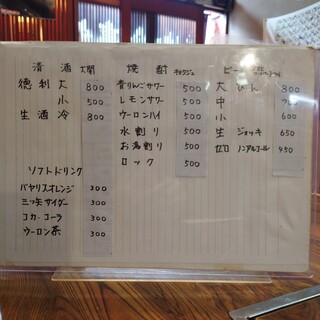 清酒 燗
徳利大 800
小 500
生酒冷 800
ソフトドリンク
バヤリスオレンジ 300
三ツ矢サイダー 300
コカ・コーラ 300
ウーロン茶 300
焼酎
青りんごサワー 500
レモンサワー 500
ウーロンハイ 500
水割り 500
お湯割り 500
ロック 500
ビール
大びん 800
中
小 600
生ジョッキ 650
ゼロ ノンアルコール 450